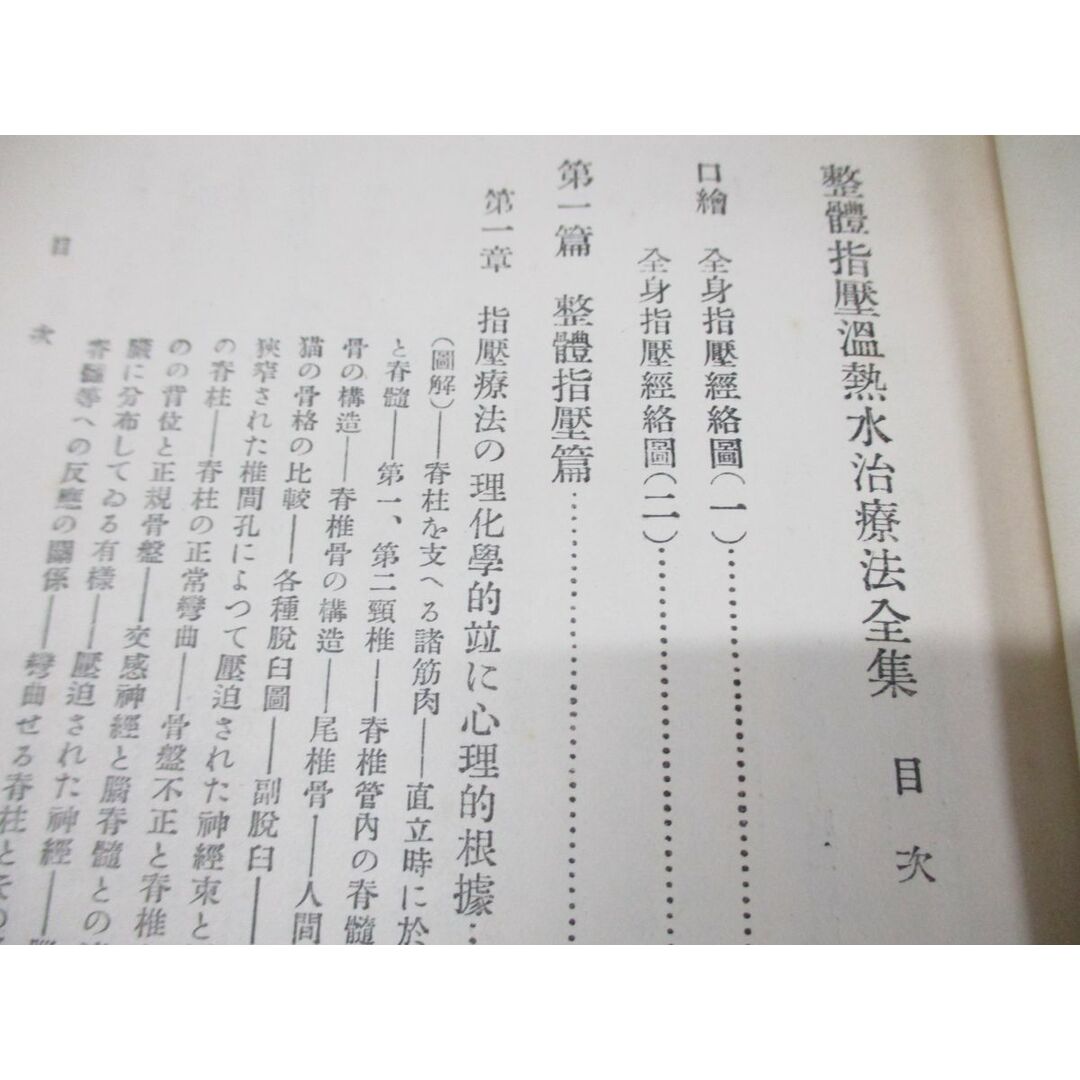 整體指壓溫熱水治療法全集 目次
口繪 全身指壓經絡圖(一)
全身指壓經絡圖(二)
第一篇 整體指壓篇
第一章 指壓療法の理化學的竝に心理的根據
(圖解)——脊柱を支へる諸筋肉——直立時に於
と脊髓——第一、第二頸椎——脊椎管內の脊髓
骨の構造——脊椎骨の構造——尾椎骨——人間
猫の骨格の比較——各種脫臼圖——副脫臼——
狹窄された椎間孔によつて壓迫された神經束と
の脊柱——脊柱の正常彎曲——骨盤不正と脊椎
のの背位と正規骨盤——交感神經と腦脊髓との
臟に分布してゐる有樣——壓迫された神經——
脊髓等への反應の關係——彎曲せる脊柱とその
目次